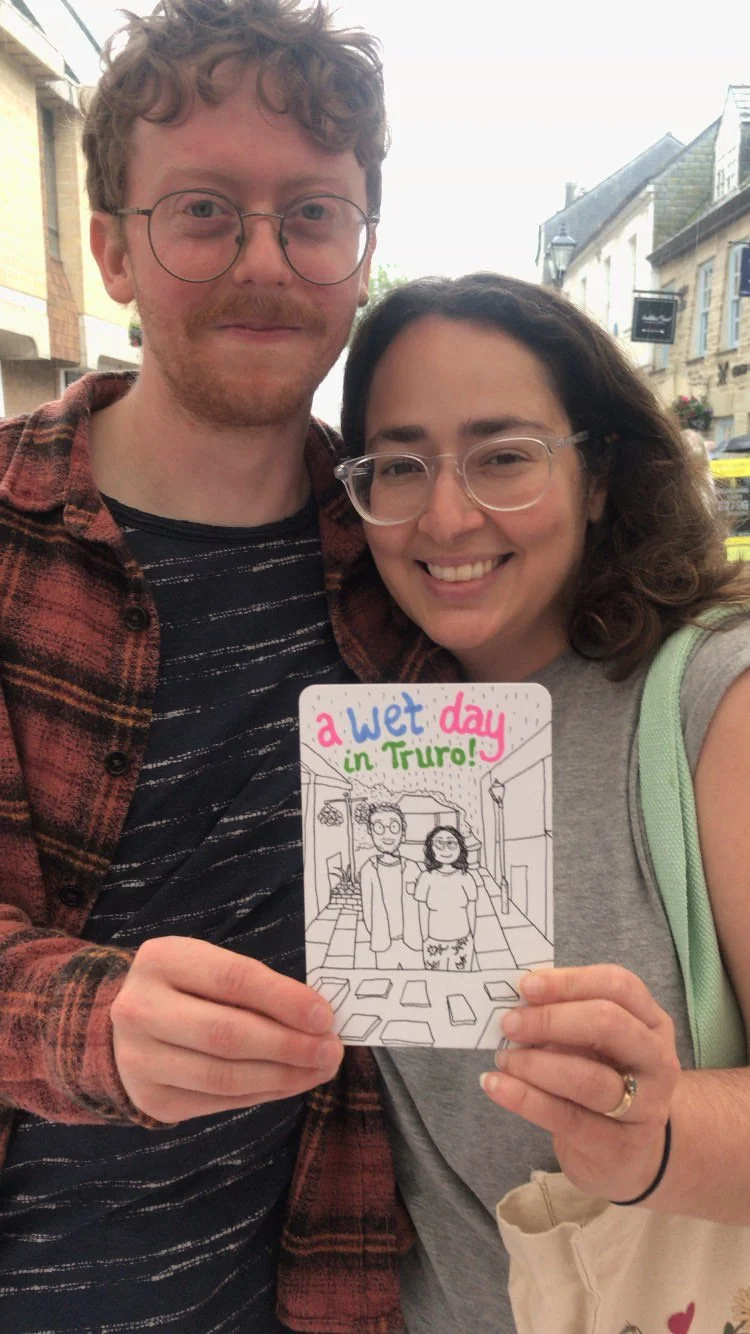 a wet day
in Truro!